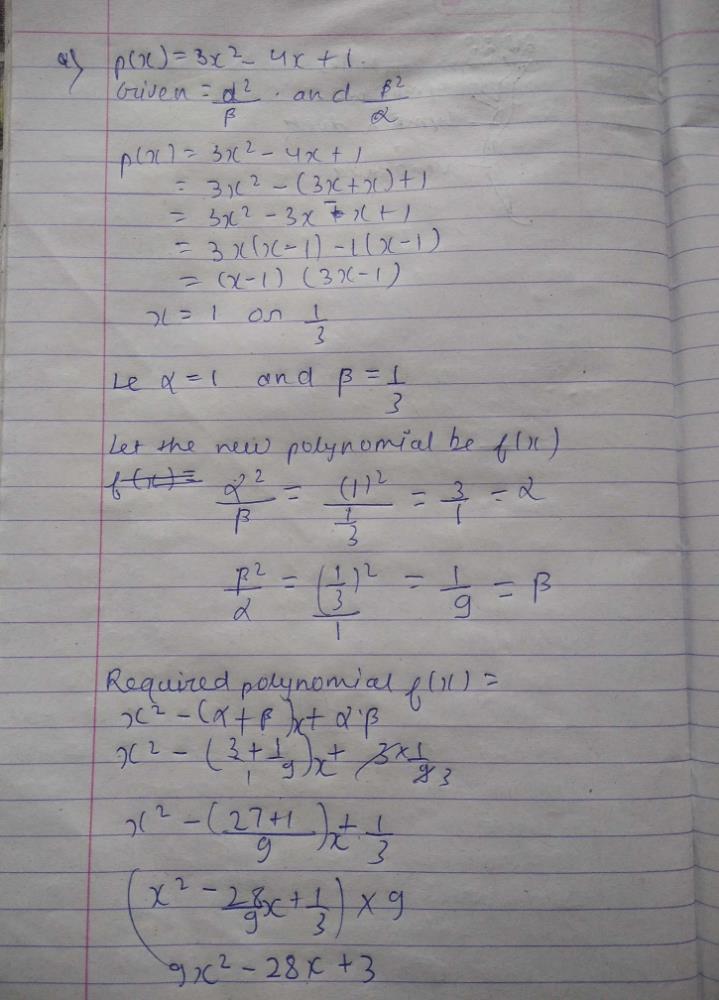 Q) p(x) = 3x² - 4x + 1.
Given = α²/β . and β²/α
p(x) = 3x² - 4x + 1
= 3x² - (3x + x) + 1
= 3x² - 3x - x + 1
= 3x(x-1) - 1(x-1)
= (x-1) (3x-1)
x = 1 or 1/3
Le α = 1 and β = 1/3
Let the new polynomial be f(x)
f(x) = α²/β = (1)²/(1/3) = 3/1 = α
β²/α = (1/3)²/1 = 1/9 = β
Required polynomial f(x) =
x² - (α + β)x + α·β
x² - (3/1 + 1/9)x + 3 × 1/9 3
x² - (27+1/9)x + 1/3
(x² - 28/9 x + 1/3) × 9
9x² - 28x + 3